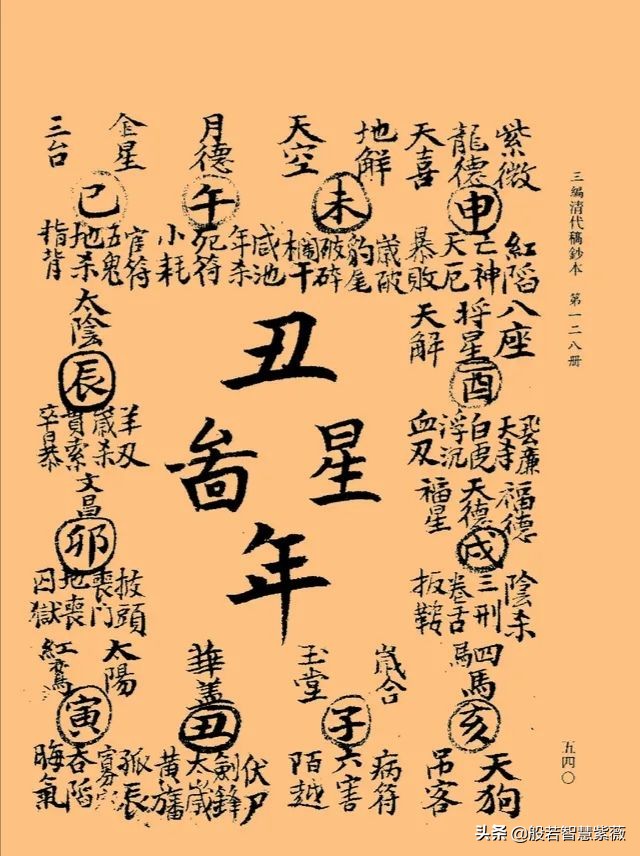 三编清代稿鈔本 第一二八册
紫微
龍德
天喜
申
紅陷
亡神
天厄
暴敗
地解
天空
未
歲破
豹尾
破碎
欄干
月德
午
咸池
年杀
死符
小耗
金星
三台
巳
官符
五鬼
地杀
指背
八座
将星
天解
酉
蜚廉
白虎
浮沉
血刃
太陰
辰
羊刃
歲杀
貫索
卒暴
丑
星
啚
年
福德
天德
福星
戌
陰杀
三刑
卷舌
扳鞍
文昌
卯
披頭
喪門
地喪
囚獄
四馬
亥
天狗
吊客
歲合
玉堂
子
病符
六害
陌越
華盖
丑
伏尸
劍鋒
太歲
黄旛
太陽
紅鸞
寅
孤辰
吞陷
晦氣
五四〇
头条 @般若智慧紫薇